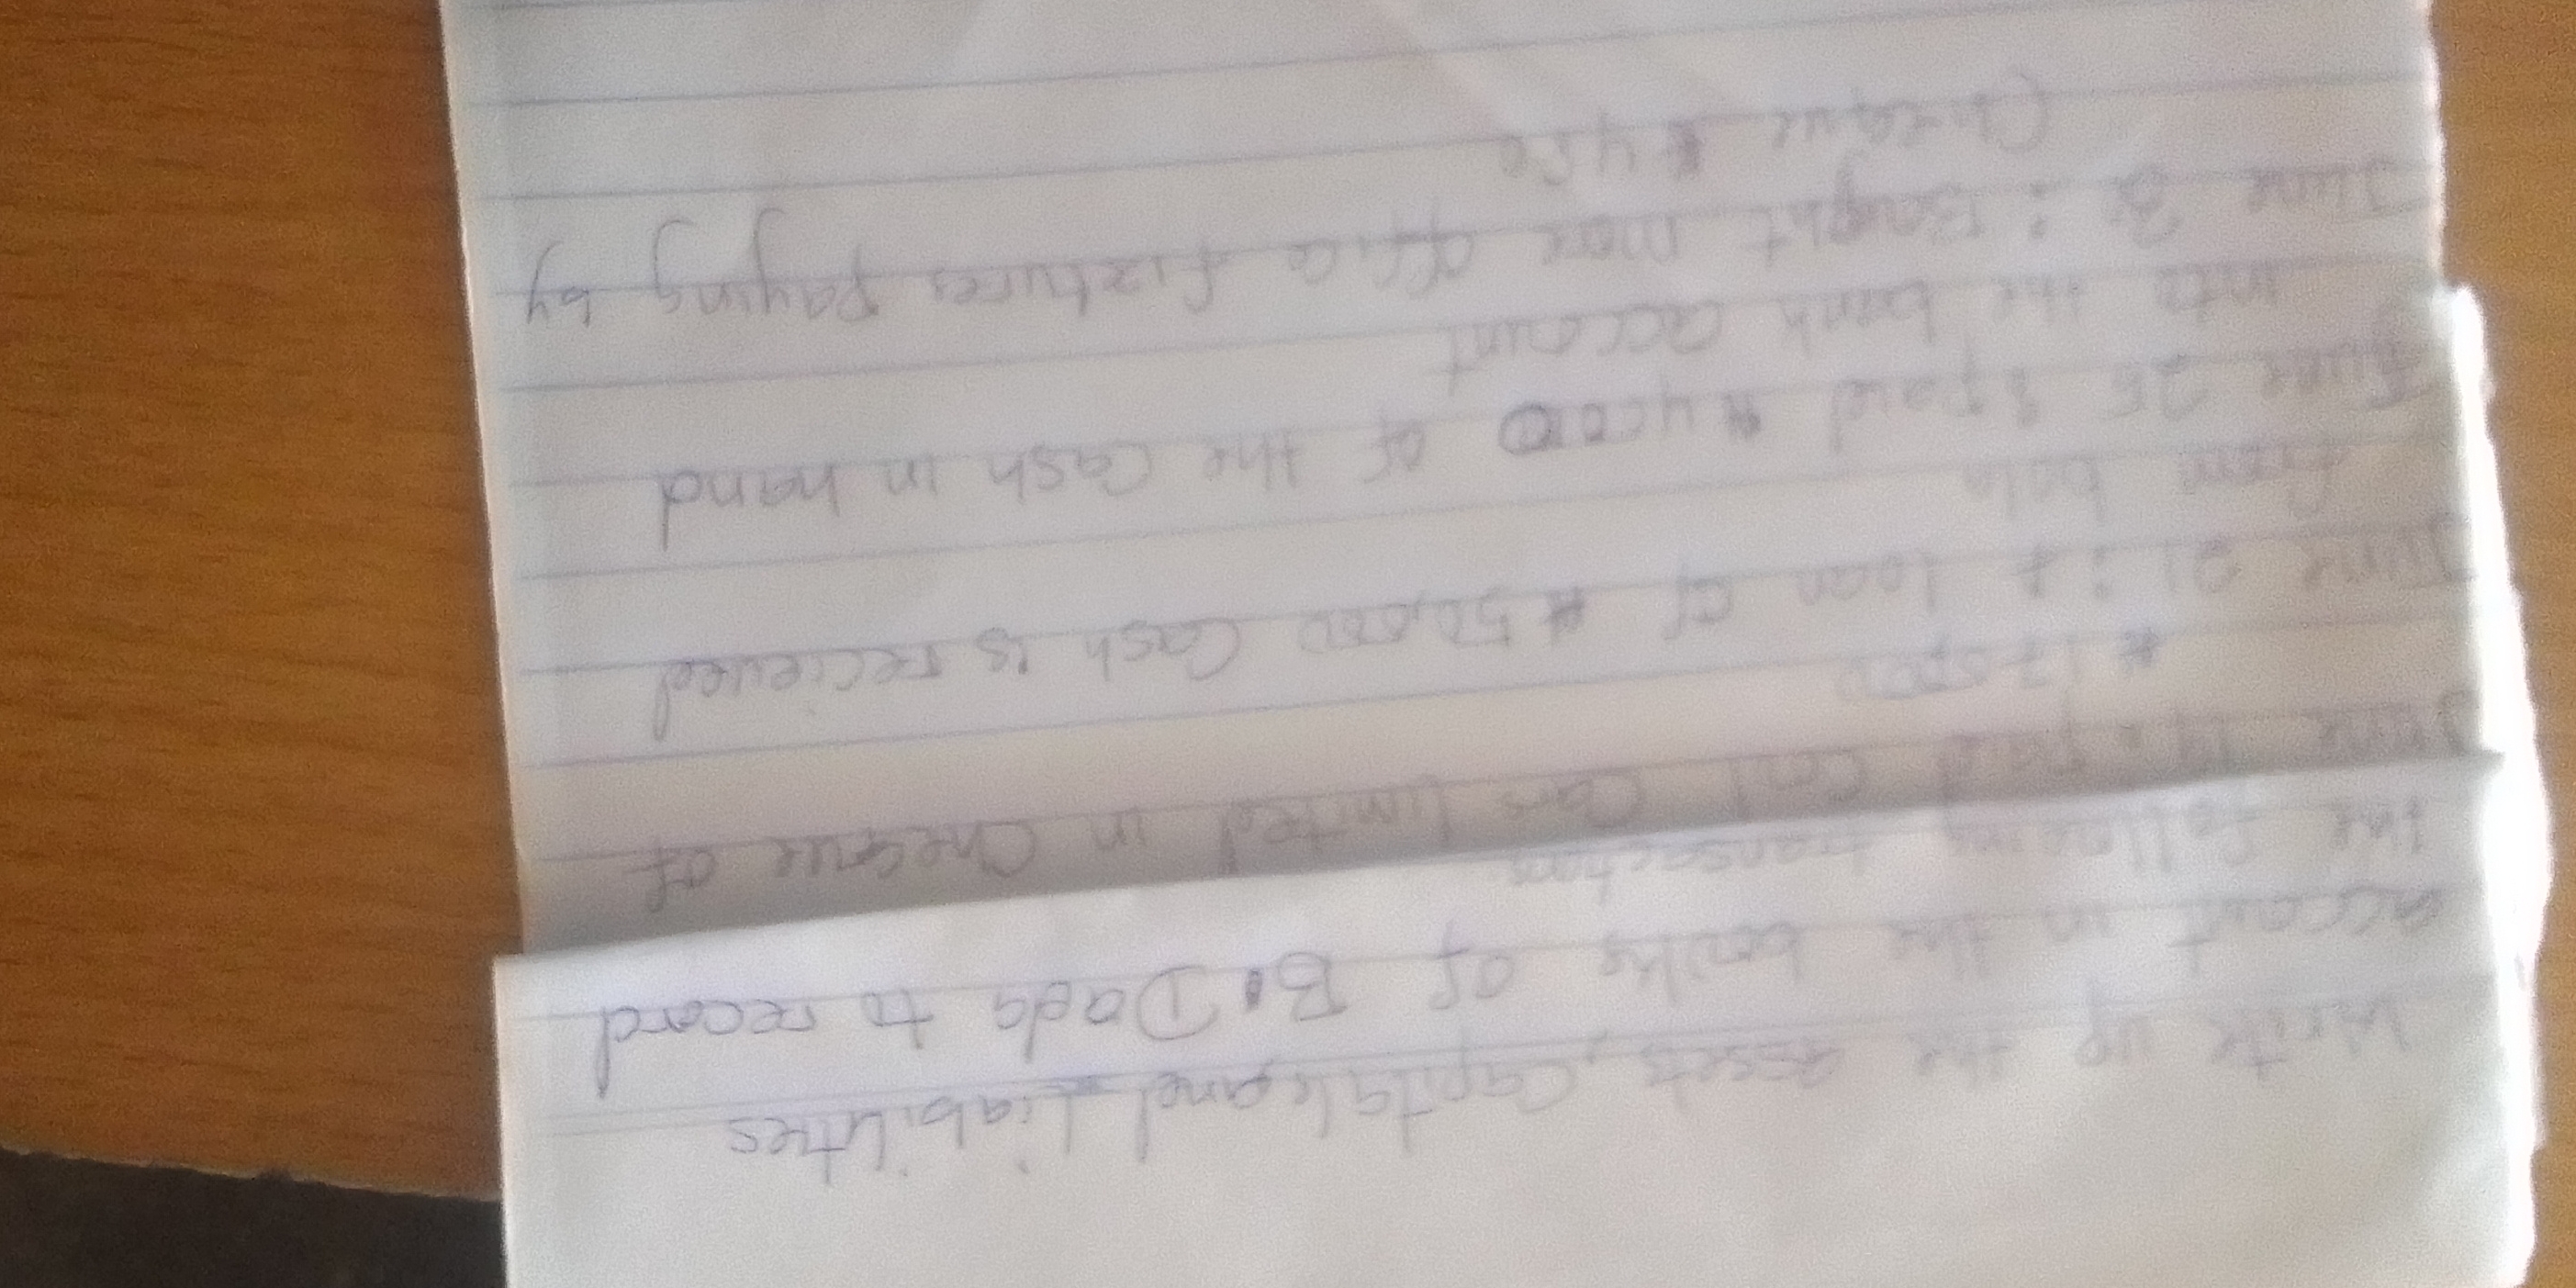 Write up the assets, Capitals and Liabilities
account in the books of B. Dada to record
the following transactions
June 14: Paid Ceri Cars limited in Cheque of
June 21: A loan of ₦50,000 Cash is recieved
from bola
June 25: Paid ₦4000 of the Cash in hand
into the bank account
June : Bought more office fixtures paying by
Cheque ₦450